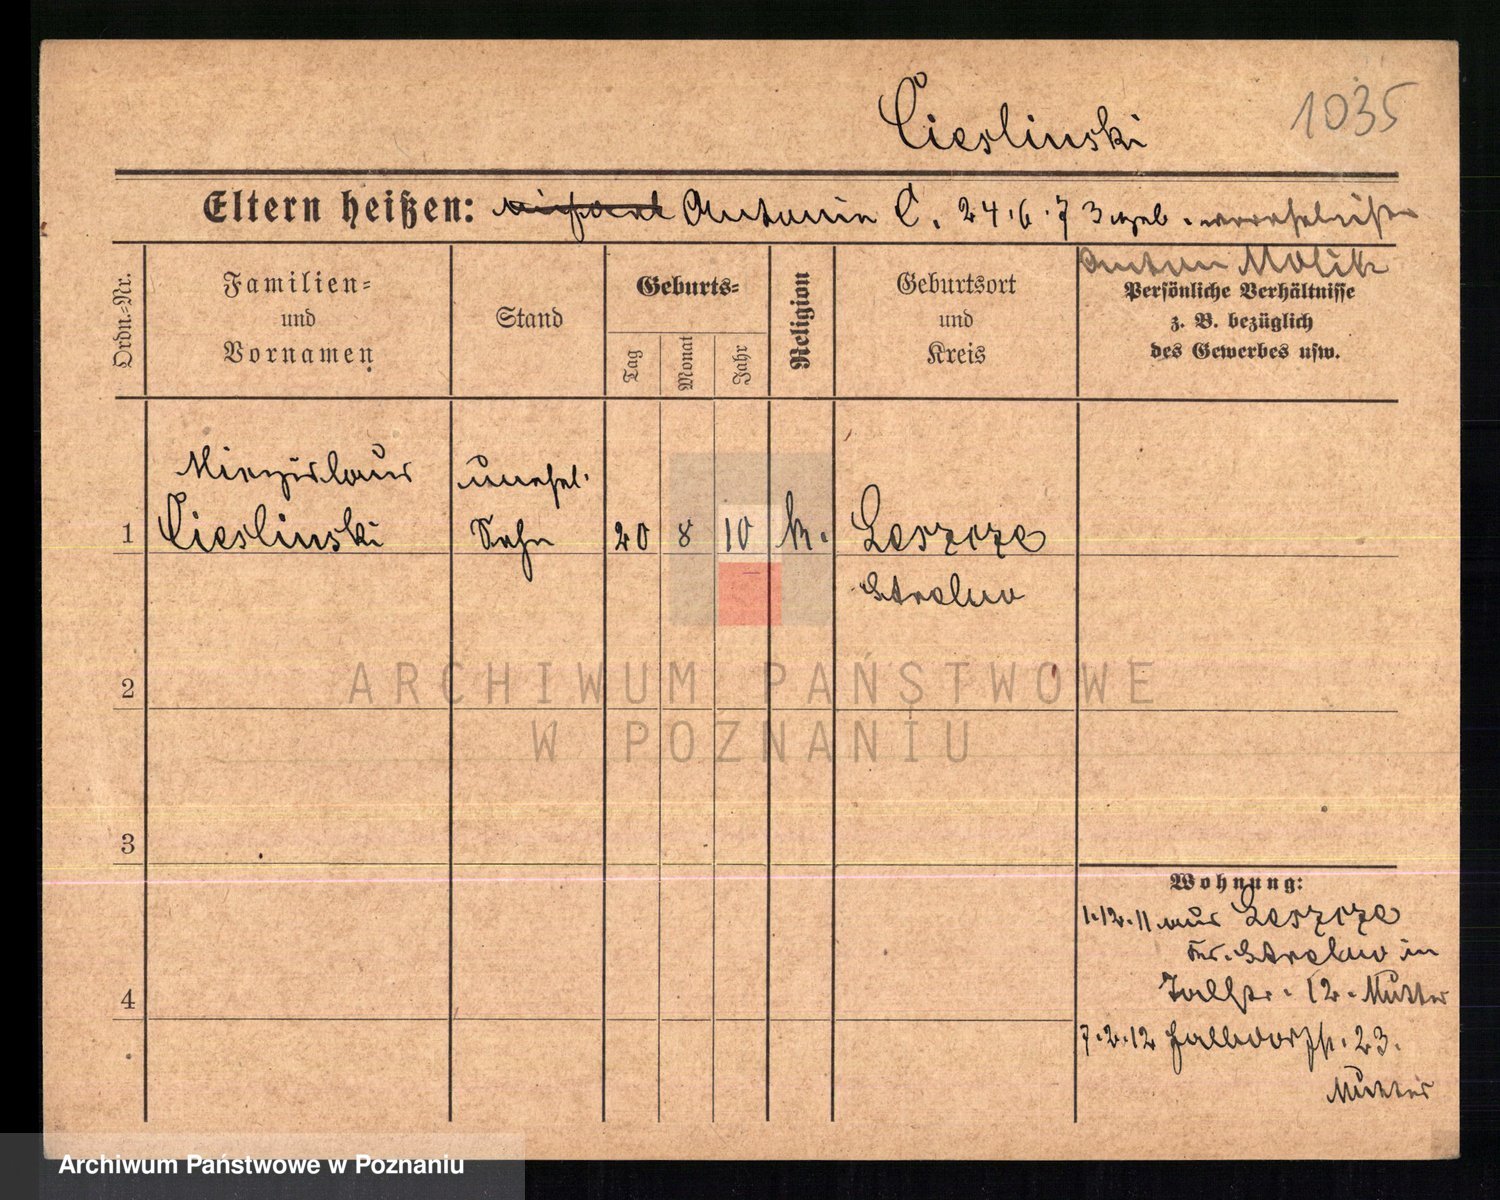 Cieslinski
1035
Eltern heißen: Antonin C. 24.6.73 geb. verehelichte
Anton Molik
Ordn.-Nr.
Familien-
und
Vornamen
Stand
Geburts-
Tag
Monat
Jahr
Religion
Geburtsort
und
Kreis
Persönliche Verhältnisse
z. B. bezüglich
des Gewerbes usw.
Miezislaus unehel.
1 Cieslinski Sohn 20 8 10 k. Leszcze
Strelno
2
3
4
Wohnung:
1.12.11 aus Leszcze
Kr. Strelno in
12. Mutter
7.2.12 Halbdorfstr. 23.
Mutter
ARCHIWUM PAŃSTWOWE
W POZNANIU
Archiwum Państwowe w Poznaniu